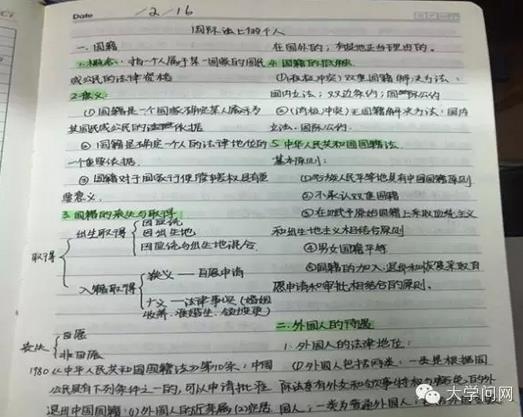 Date 12/16
国际法上的个人
一.国籍
1.概念:指一个人属于某一国家的国民
或公民的法律资格
2.意义
①国籍是一个国家确定某人属于为
其国民或公民的法律依据
②国籍是确定一个人的法律地位的
一个重要依据
③国籍对于国家行使管辖权具有重
要意义.
3.国籍的丧失与取得
取得
出生取得
因血统
因出生地
因血统与出生地混合
入籍取得
狭义——自愿申请
广义——法律事实(婚姻
收养.准婚生.领域变更)
丧失
自愿
非自愿
1980《中华人民共和国国籍法》第10条:中国
公民具有下列条件之一的,可以申请批准
退出中国国籍:(1)外国人的近亲属(2)定居
在国外的;有其他正当理由的。
4.国籍的抵触
①(积极冲突)双重国籍解决方法:
国内立法;双边条约;国际公约
②(消极冲突)无国籍解决方法:国内
立法、国际公约.
5.中华人民共和国国籍法
基本原则:
①各族人民平等地具有中国国籍原则
②不承认双重国籍
③在赋予原始国籍上采取血统主义
和出生地主义相结合原则
④男女国籍平等
⑤国籍的加入.退出和恢复采取自
愿申请和审批相结合的原则.
二.外国人的待遇
1.外国人的法律地位:
①外国人包括两类:一类是根据国
际法享有外交和领事特权与豁免的外
国人;一类为普通外国人
大学问网